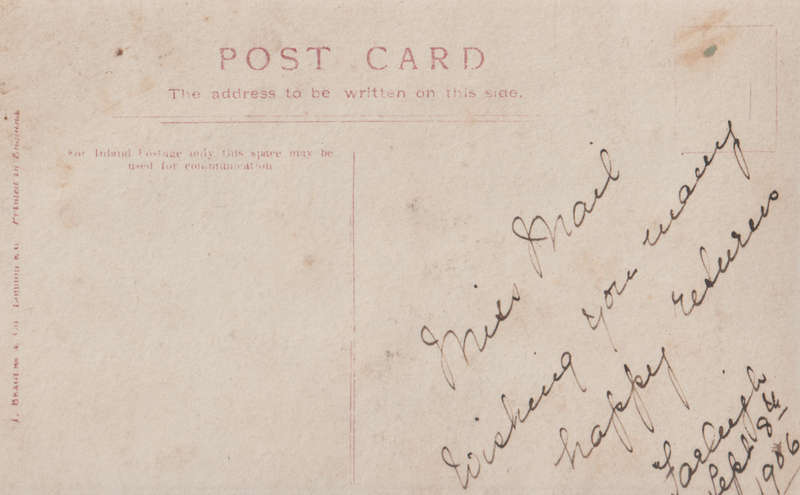 POST CARD
The address to be written on this side.
For Inland Postage only this space may be
used for communication
Miss Mail
Wishing you many
happy returns
Farleigh
Sept 8th
1906
J. Beagles & Co. London E.C. Printed in England